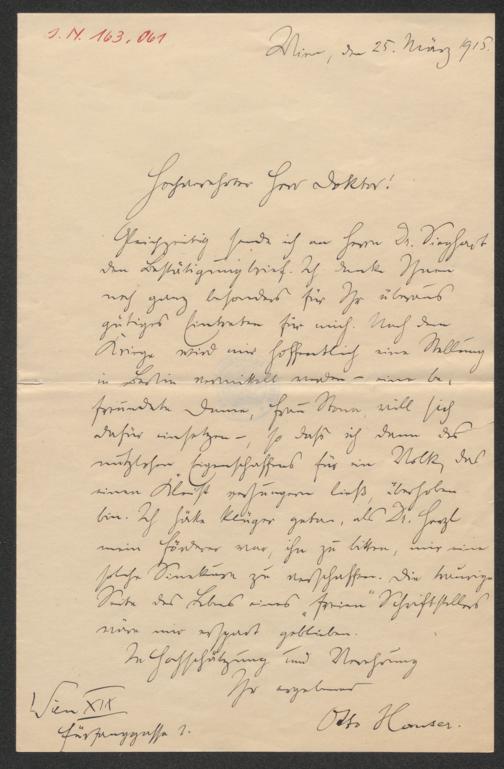 J. N. 163.061
Wien, den 25. März 1915.
Hochverehrter Herr Doktor!
Gleichzeitig sende ich an Herrn Dr. Sieghart
den Bestätigungsbrief. Ich danke Ihnen
noch ganz besonders für Ihr überaus
gütiges Eintreten für mich. Nach dem
Kriege wird mir hoffentlich eine Stellung
in Berlin vermittelt werden – eine be-
freundete Dame, Frau Stona, will sich
dafür einsetzen –, so daß ich dann des
nutzlosen Schaffens für ein Volk, das
einen Kleist verhungern ließ, überhoben
bin. Ich hätte klüger getan, als Dr. Herzl
mein Förderer war, ihn zu bitten, mir eine
solche Sinekure zu verschaffen. Die traurige
Seite des Lebens eines „freien“ Schriftstellers
wäre mir erspart geblieben.
In Hochschätzung und Verehrung
Ihr ergebener
Otto Hauser.
Wien XIX
1.